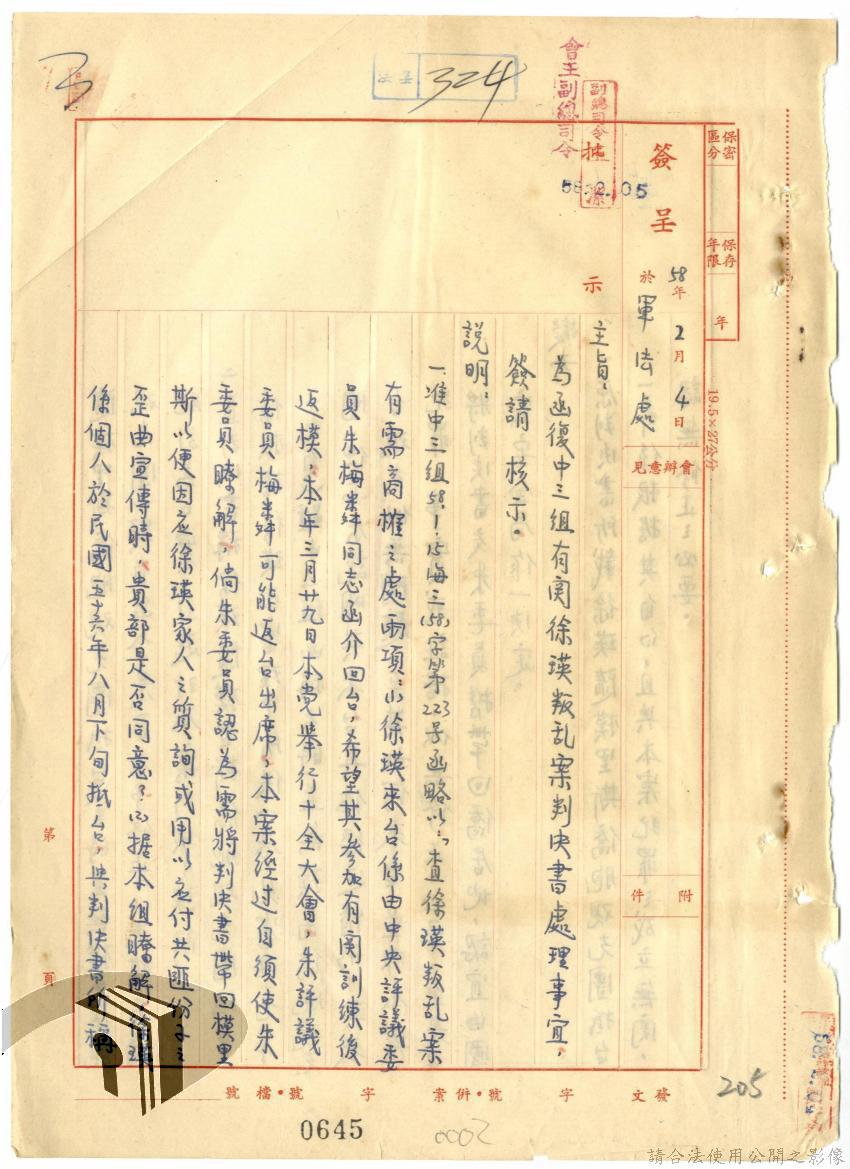 保密區分
保存年限
年
19.5×27公分
簽呈
58年2月4日
於軍法處
會辦意見
附件
批示
會王副總司令
副總司令
58.2.05
324
主旨：
為函復中三組有関徐瑛叛乱案判決書處理事宜，
簽請 核示。
說明：
一、准中三組58.1.15海三(58)字第223号函略以：「查徐瑛叛乱案
有需商榷之處兩項：(1)徐瑛來台係由中央評議委
員朱梅粦同志函介回台，希望其參加有関訓練後
返模，本年三月廿九日本党舉行十全大會，朱評議
委員梅粦可能返台出席，本案經过自須使朱
委員瞭解，倘朱委員認為需將判決書帶回模里
斯以便因应徐瑛家人之質詢或用以应付共匪份子之
歪曲宣傳時，貴部是否同意？(2)据本組瞭解，徐瑛
係個人於民國五十六年八月下旬抵台，與判決書所稱
第 頁
發文 字 號・併案 字 號・檔號
205
0645
0002
請合法使用公開之影像